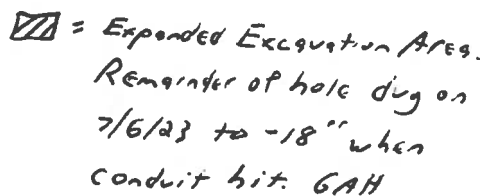 = Expanded Excavation Area.
Remainder of hole dug on
7/6/23 to -18" when
conduit hit. GAH